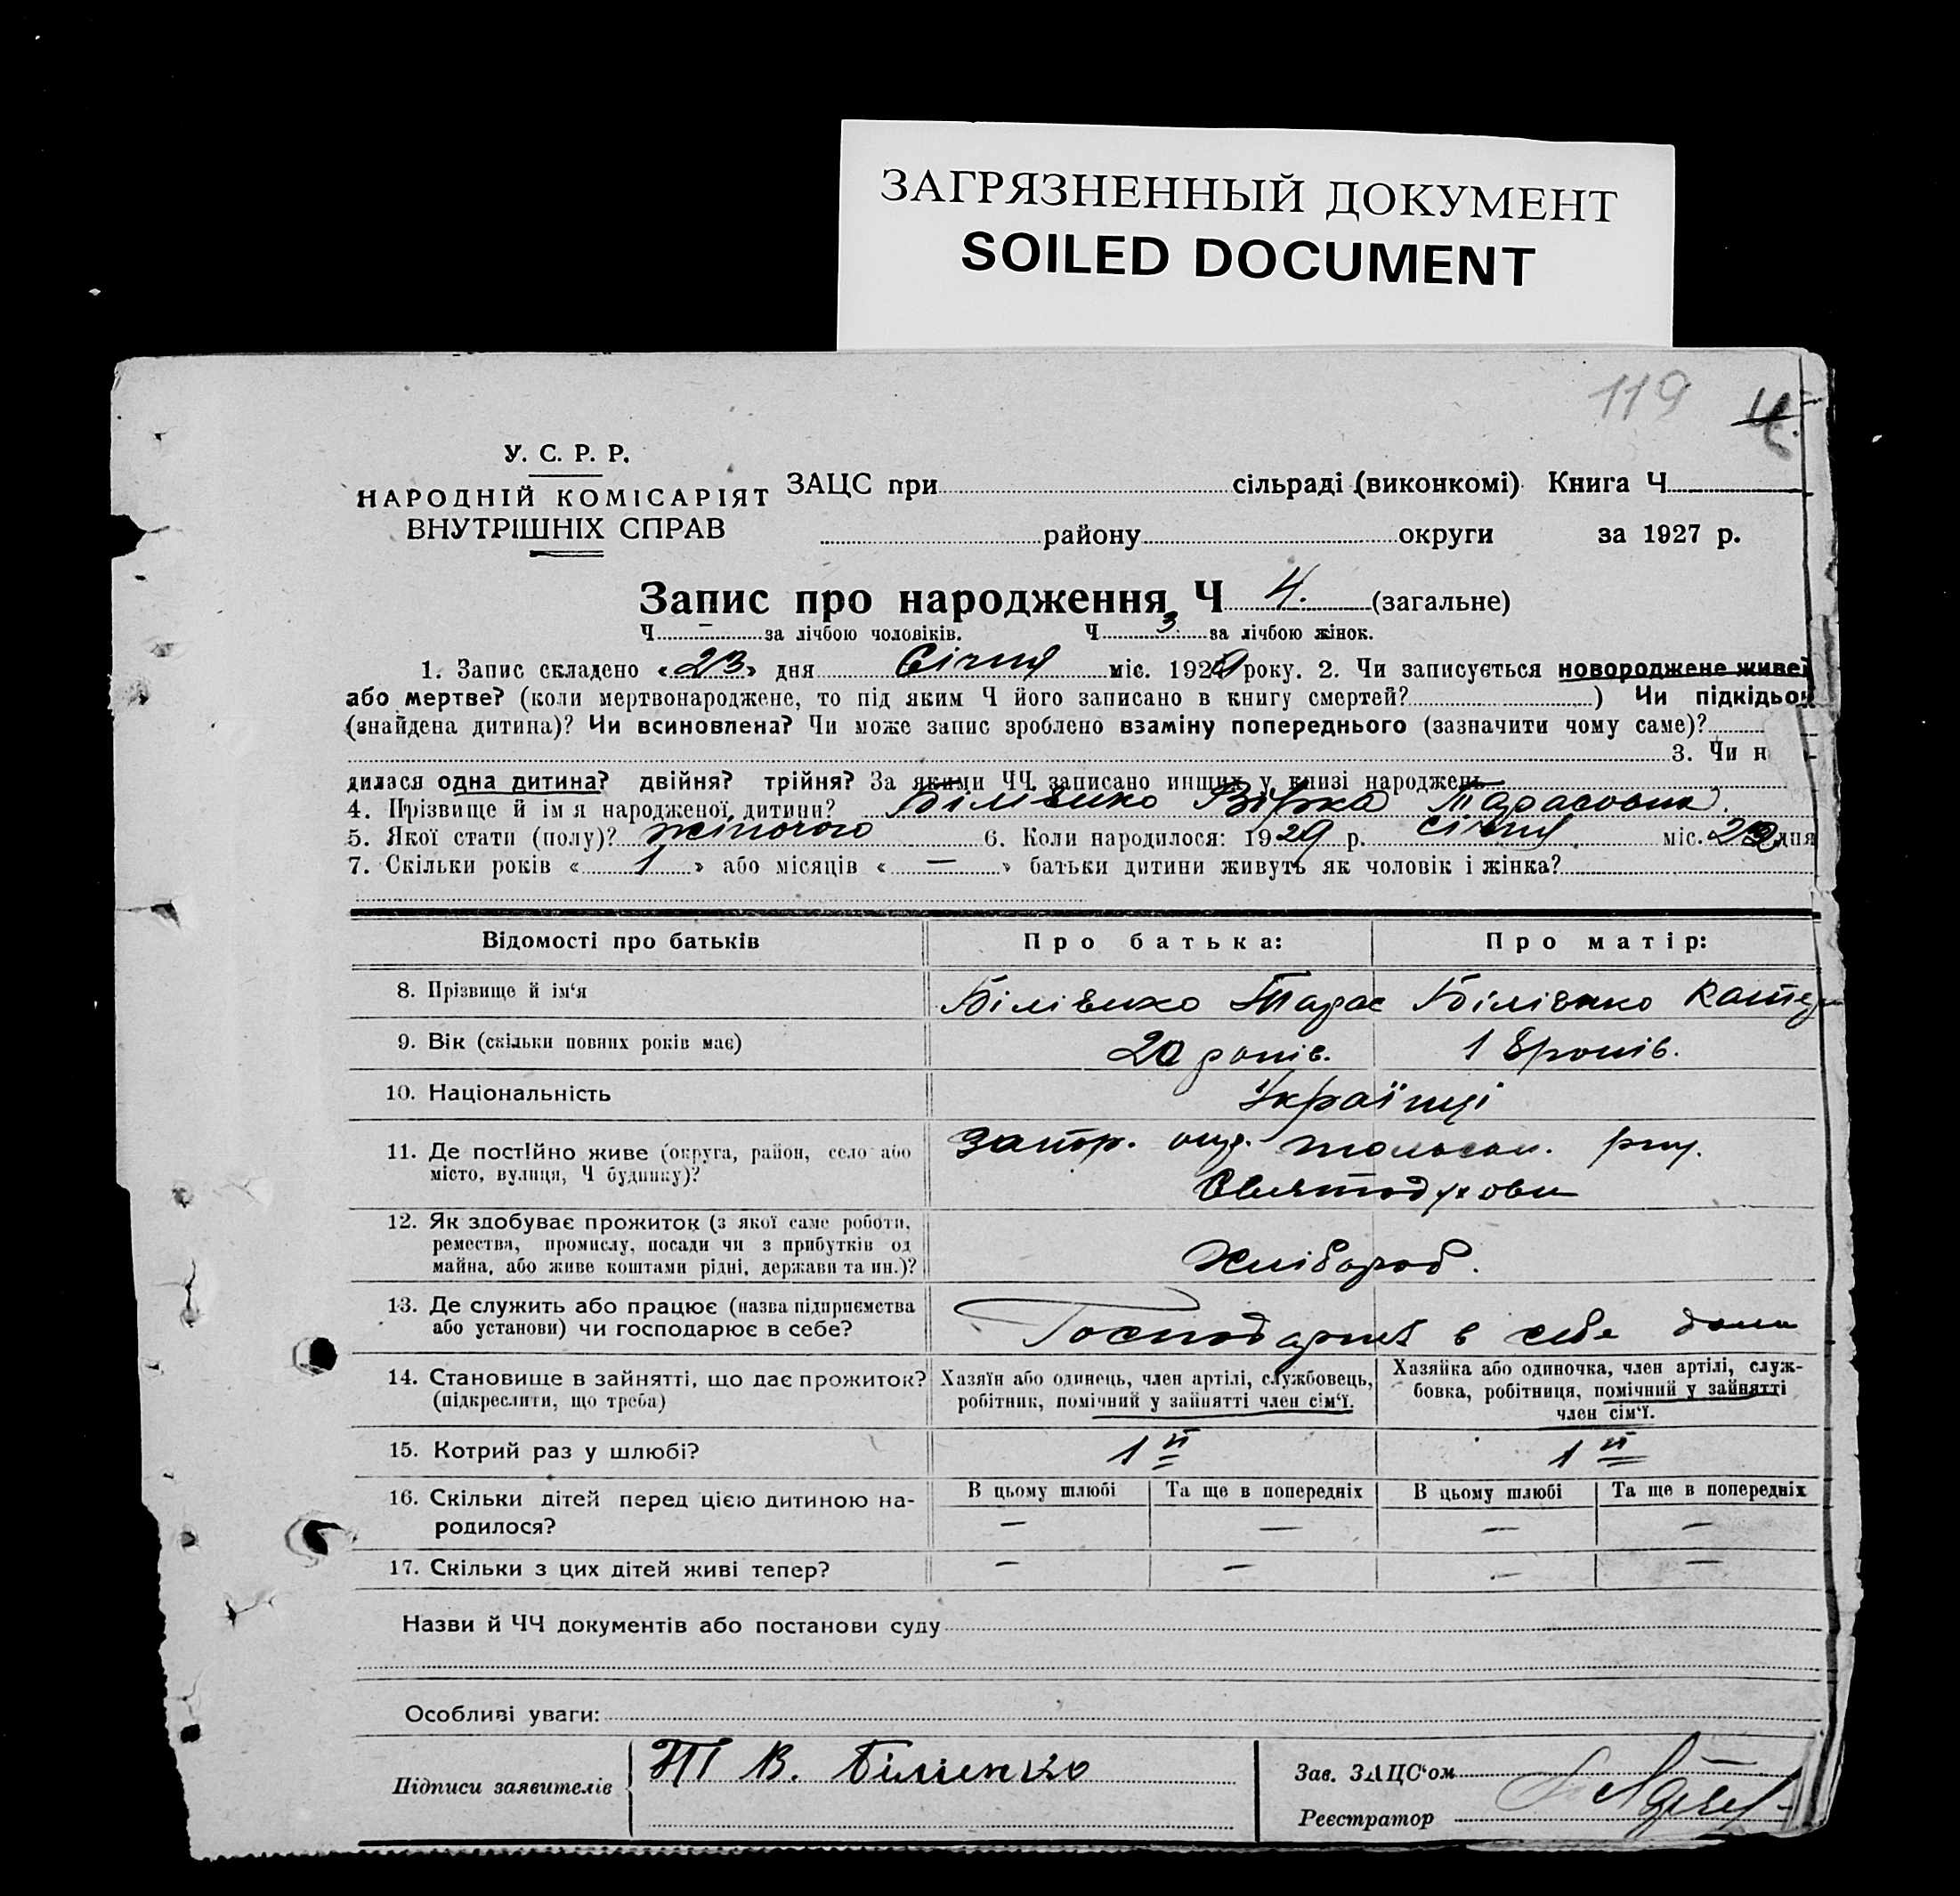 ЗАГРЯЗНЕННЫЙ ДОКУМЕНТ
SOILED DOCUMENT
119
У. С. Р. Р.
НАРОДНІЙ КОМІСАРІЯТ
ВНУТРІШНІХ СПРАВ
ЗАЦС при сільраді (виконкомі) Книга Ч
району округи за 1927 р.
Запис про народження Ч 4. (загальне)
Ч – за лічбою чоловіків. Ч 3 за лічбою жінок.
1. Запис складено «23» дня Січня міс. 1929 року. 2. Чи записується новороджене живе?
або мертве? (коли мертвонароджене, то під яким Ч його записано в книгу смертей? ) Чи підкідьок
(знайдена дитина)? Чи всиновлена? Чи може запис зроблено взаміну попереднього (зазначити чому саме)?
3. Чи н
дилася одна дитина? двійня? трійня? За якими ЧЧ записано инших у книзі народжень
4. Прізвище й ім я народженої дитини? Білієнко Вірка Тарасовна.
5. Якої стати (полу)? жіночого 6. Коли народилося: 1929 р. січня міс. дня
7. Скільки років « 1 » або місяців « — » батьки дитини живуть як чоловік і жінка?
Відомості про батьків Про батька: Про матір:
8. Прізвище й ім'я Білієнко Тарас Білієнко Катер
9. Вік (скільки повних років має) 20 років. 18 років.
10. Національність Українці
11. Де постійно живе (округа, район, село або
місто, вулиця, Ч будинку)?
Запор. окр. рну.
Святодухови
12. Як здобуває прожиток (з якої саме роботи,
ремества, промислу, посади чи з прибутків од
майна, або живе коштами рідні, держави та ин.)?
Хлібороб.
13. Де служить або працює (назва підприємства
або установи) чи господарює в себе?
Господарює в себе дома
14. Становище в зайнятті, що дає прожиток?
(підкреслити, що треба)
Хазяїн або одинець, член артілі, службовець,
робітник, помічний у зайнятті член сім'ї.
Хазяйка або одиночка, член артілі, служ-
бовка, робітниця, помічний у зайнятті
член сім'ї.
15. Котрий раз у шлюбі? 1й 1й
16. Скільки дітей перед цією дитиною на-
родилося?
В цьому шлюбі Та ще в попередніх В цьому шлюбі Та ще в попередніх
— — — —
17. Скільки з цих дітей живі тепер? — — — —
Назви й ЧЧ документів або постанови суду
Особливі уваги:
Підписи заявителів Т В. Білієнко
Зав. ЗАЦС'ом
Реєстратор